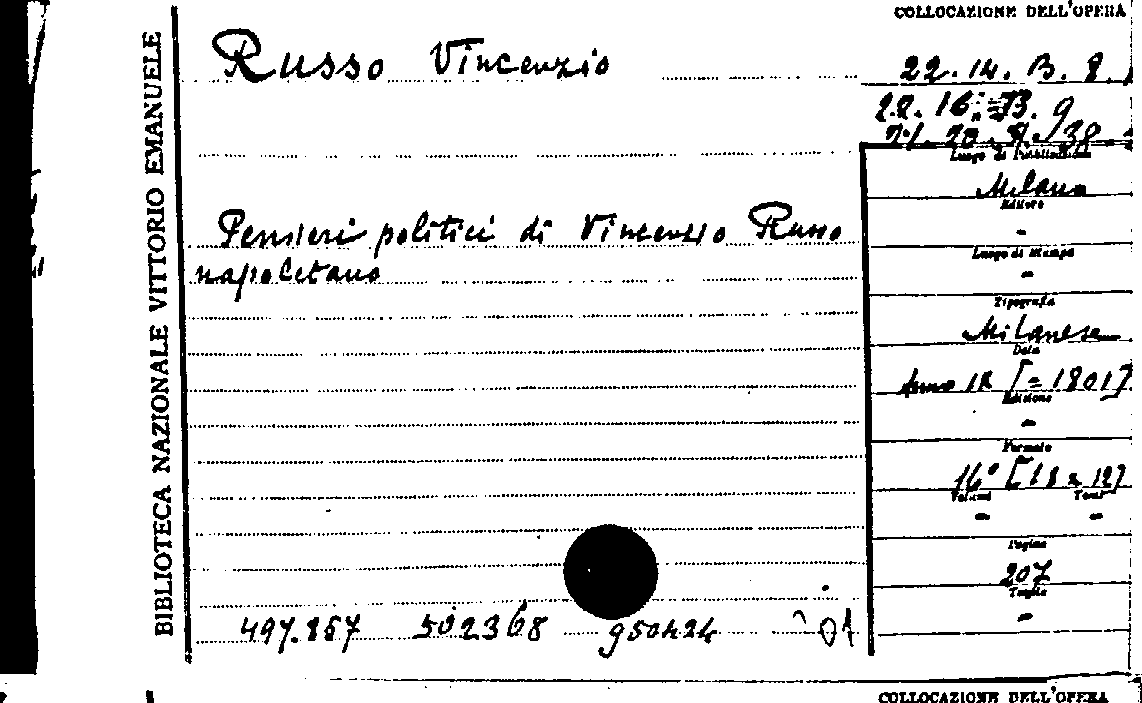 COLLOCAZIONE DELL'OPERA
BIBLIOTECA NAZIONALE VITTORIO EMANUELE
Russo Vincenzio
22.14.B.8.
22.16.B.9
Luogo di Pubblicazione
Milano
Editore
-
Luogo di stampa
-
Tipografia
Milanese
Data
Anno IX [=1801]
Edizione
-
Formato
16° [18x12]
Volumi Tomi
- -
Pagine
207
Taglia
-
Pensieri politici di Vincenzio Russo
napoletano
497.857 502368 950424
COLLOCAZIONE DELL'OPERA